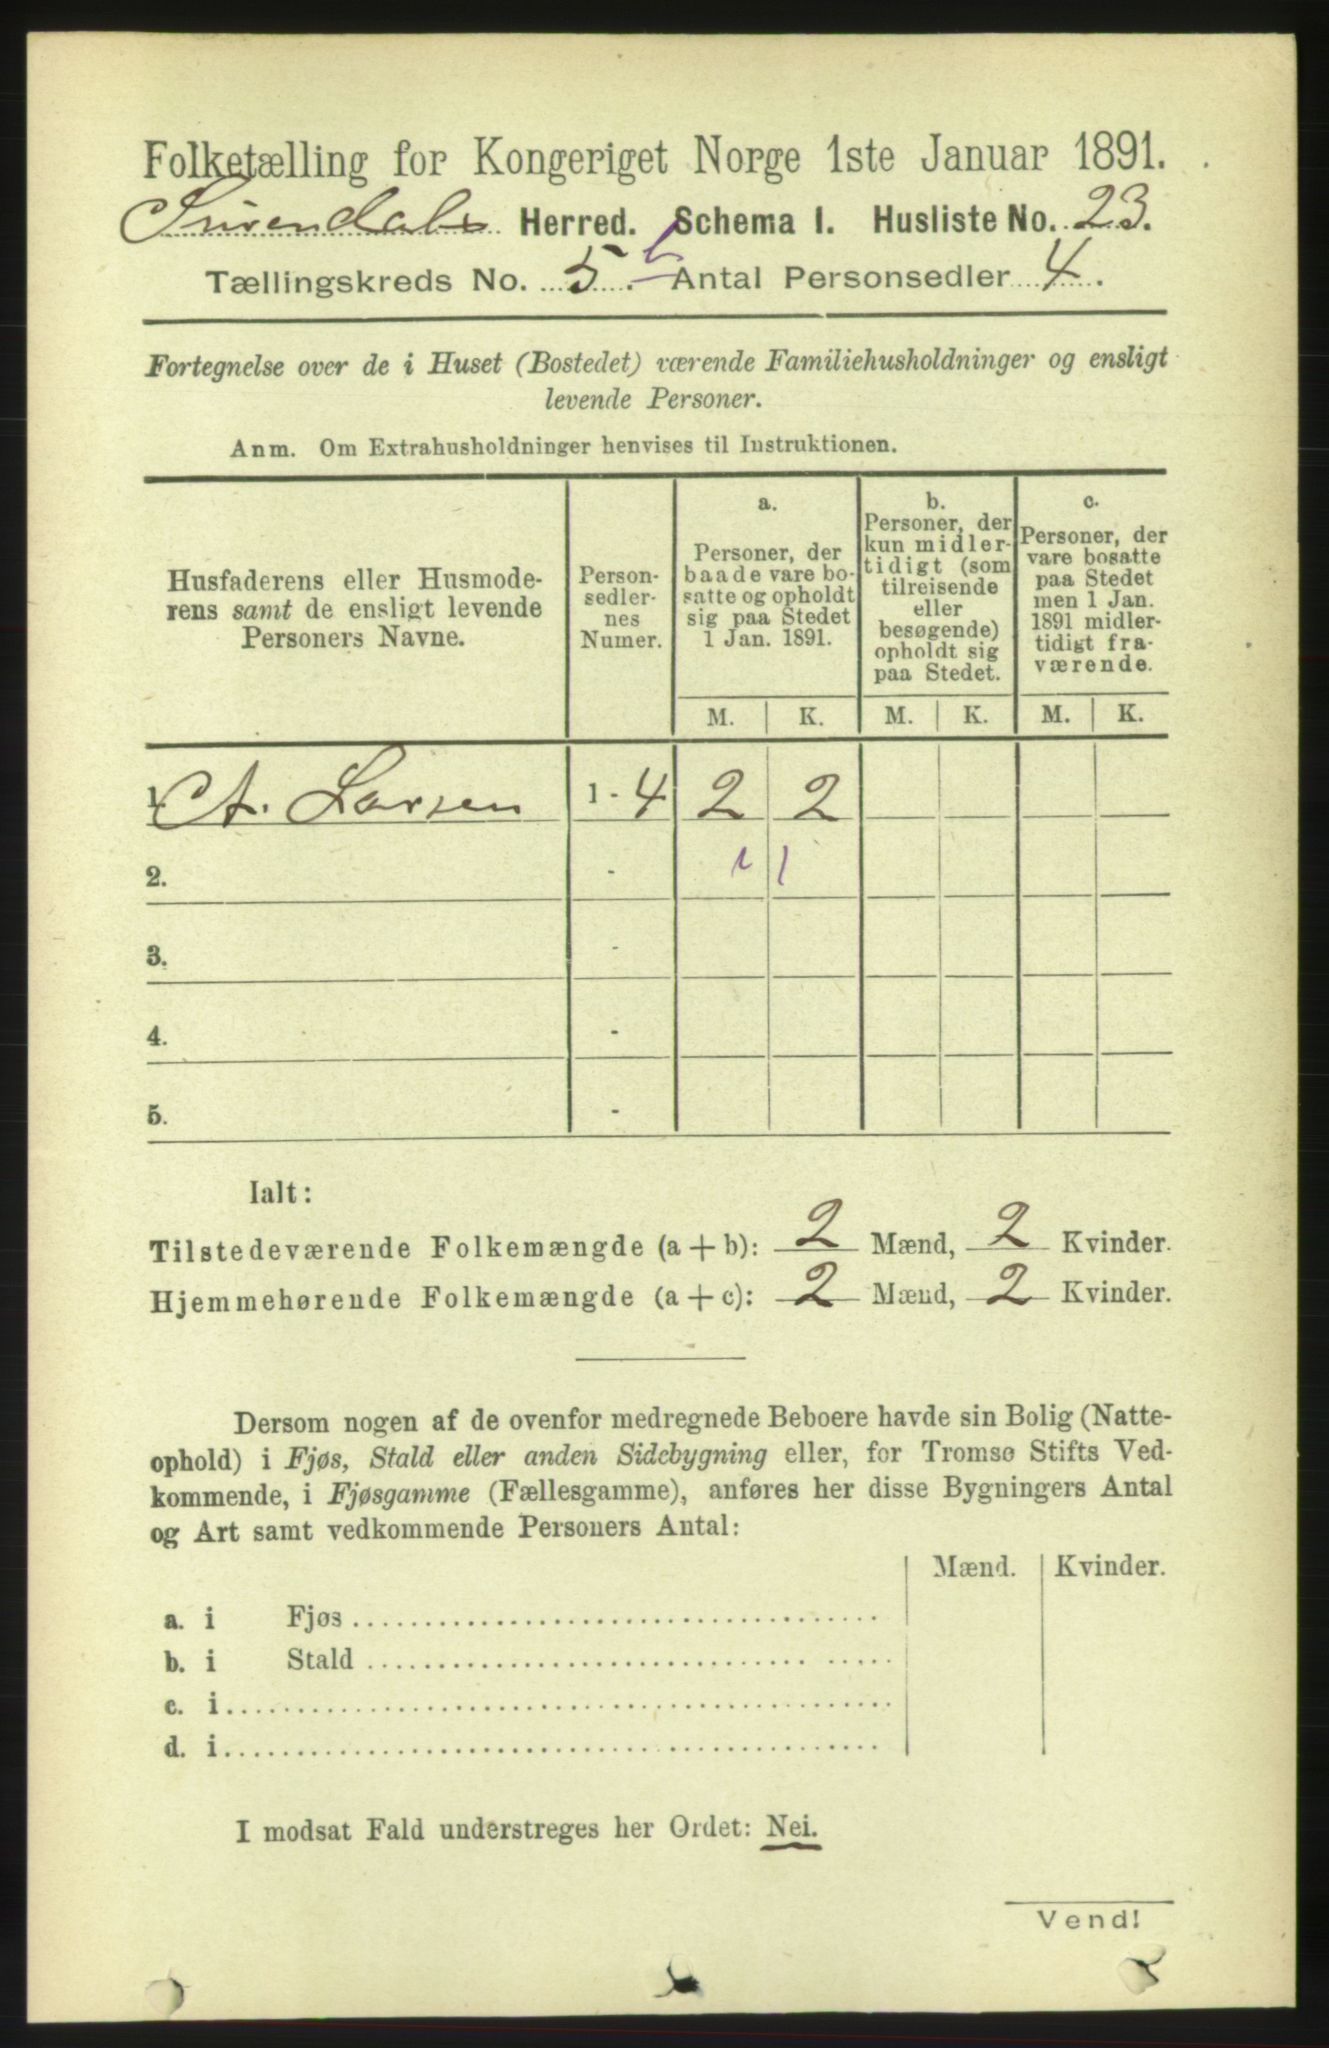 Folketælling for Kongeriget Norge 1ste Januar 1891.
Herred. Schema I. Husliste No. 23.
Tællingskreds No. 5 b. Antal Personsedler 4.
Fortegnelse over de i Huset (Bostedet) værende Familiehusholdninger og ensligt
levende Personer.
Anm. Om Extrahusholdninger henvises til Instruktionen.
Husfaderens eller Husmode-
rens samt de ensligt levende
Personers Navne.
Person-
sedler-
nes
Numer.
a.
Personer, der
baade vare bo-
satte og opholdt
sig paa Stedet
1 Jan. 1891.
b.
Personer, der
kun midler-
tidigt (som
tilreisende
eller
besøgende)
opholdt sig
paa Stedet.
c.
Personer, der
vare bosatte
paa Stedet
men 1 Jan.
1891 midler-
tidigt fra-
værende.
M. K. M. K. M. K.
1. A. Larsen 1 - 4 2 2
2. - 1 1
3. -
4. -
5. -
Ialt:
Tilstedeværende Folkemængde (a + b): 2 Mænd, 2 Kvinder.
Hjemmehørende Folkemængde (a + c): 2 Mænd, 2 Kvinder.
Dersom nogen af de ovenfor medregnede Beboere havde sin Bolig (Natte-
ophold) i Fjøs, Stald eller anden Sidebygning eller, for Tromsø Stifts Ved-
kommende, i Fjøsgamme (Fællesgamme), anføres her disse Bygningers Antal
og Art samt vedkommende Personers Antal:
Mænd. Kvinder.
a. i Fjøs
b. i Stald
c. i
d. i
I modsat Fald understreges her Ordet: Nei.
Vend!